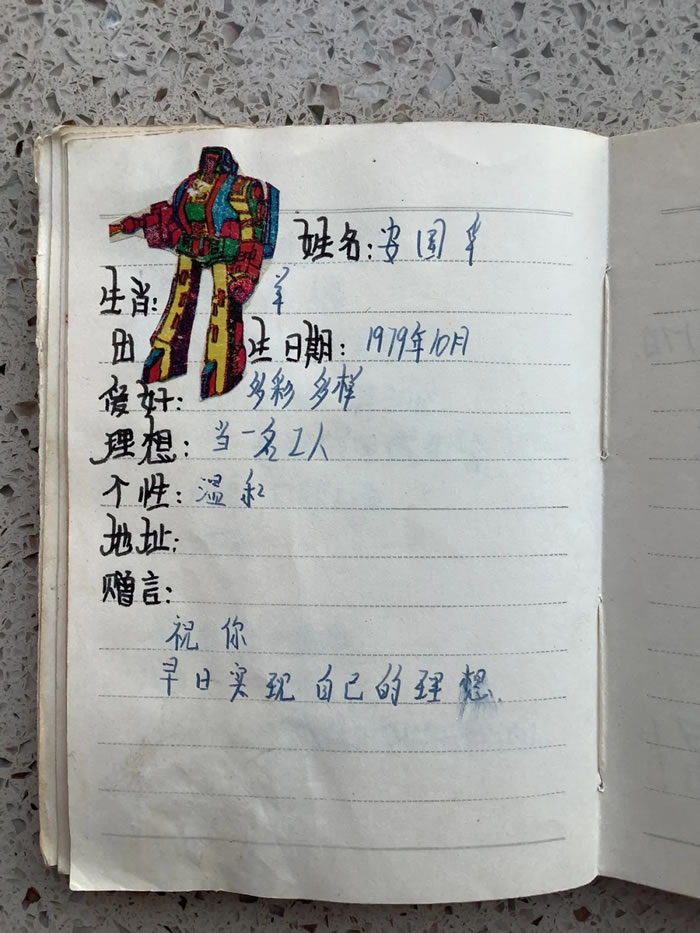 姓名:安国平
生肖: 羊
出生日期: 1979年10月
爱好: 多彩多样
理想: 当一名工人
个性: 温和
地址:
赠言:
祝你
早日实现自己的理想.